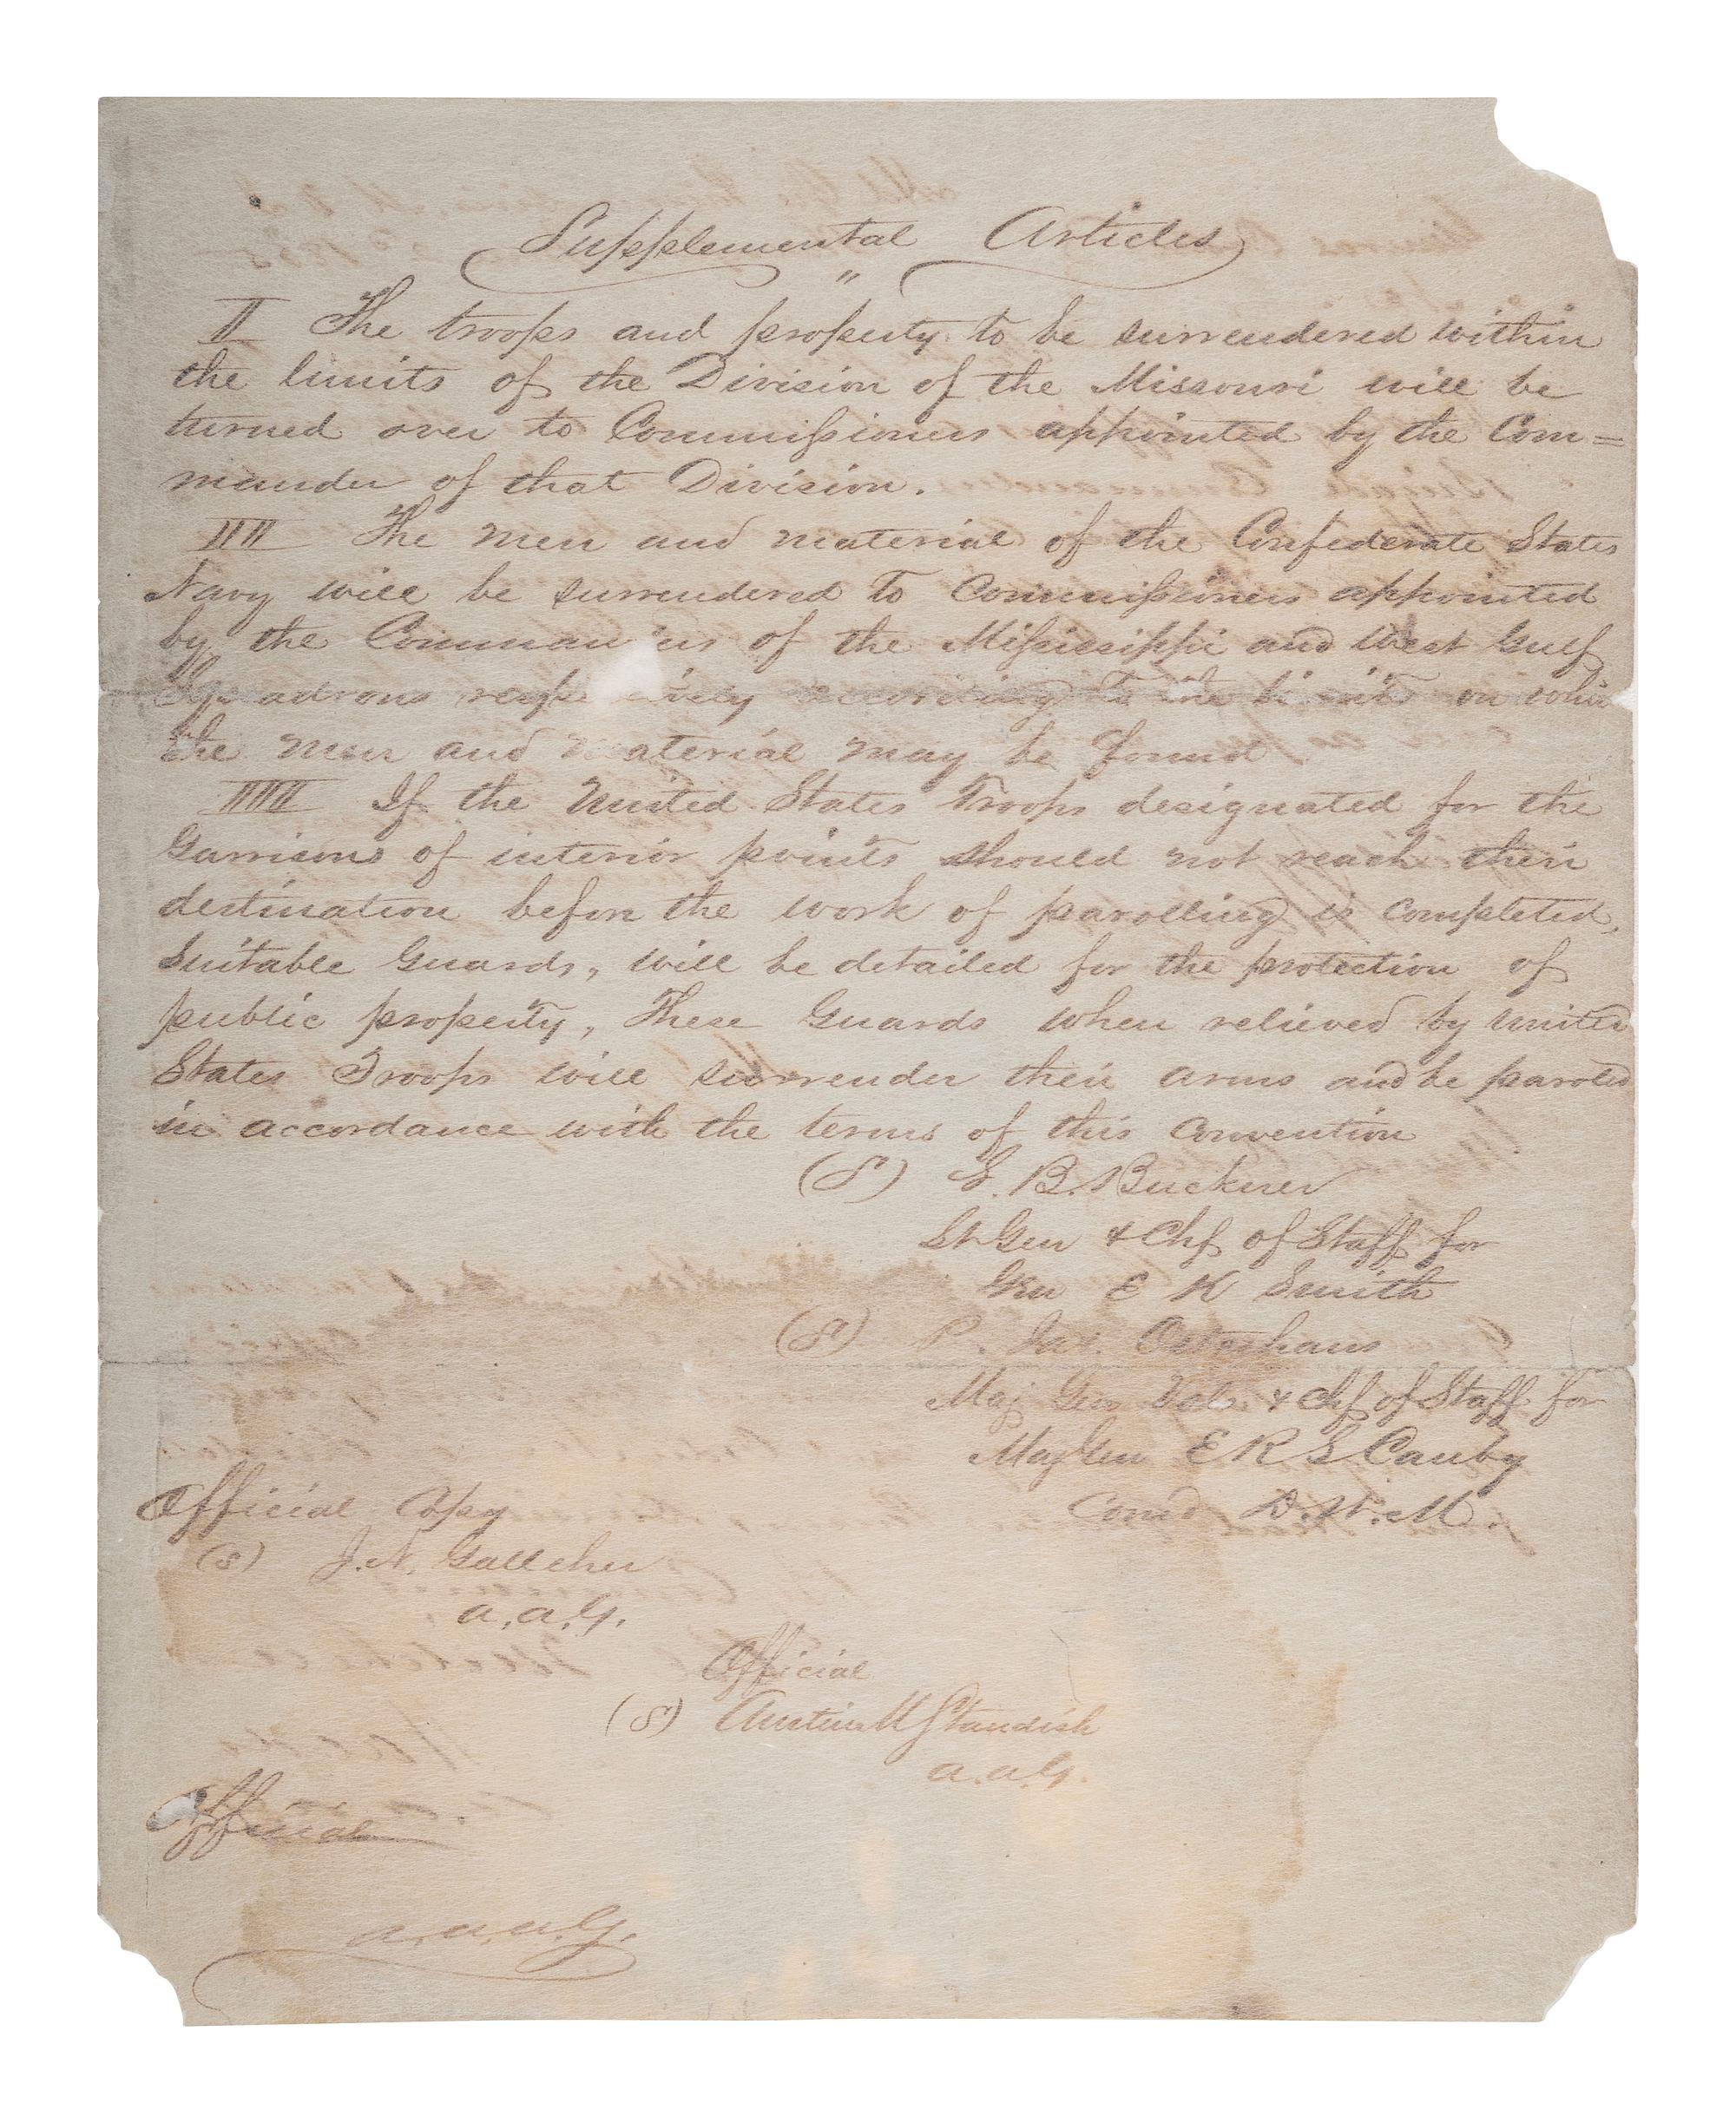 Supplemental Articles
"
II The troops and property to be surrendered within
the limits of the Division of the Missouri will be
turned over to Commissioners appointed by the Com=
mander of that Division.
IIII The men and material of the Confederate States
Navy will be surrendered to Commissioners appointed
by the Comman ers of the Mississippi and West Gulf
Squadrons respe ively according to the limits on whic
the men and material may be found.
IIIII If the United States Troops designated for the
Garrisons of interior points should not reach their
destination before the work of parolling is completed,
Suitable Guards, will be detailed for the protection of
public property, These Guards when relieved by United
States Troops will surrender their arms and be paroled
in accordance with the terms of this Convention
(S) S. B. Buckner
Lt Gen & Chf of Staff for
Gen E K Smith
(S) P. Jos. Osterhaus
Maj Gen Vols & Chf of Staff for
Maj Gen E R S Canby
Com'd D. W. M.
Official Copy
(S) J. N. Galleher
a. a. G.
Official
(S) Austin M Standish
a. a. G.
Official
a. a. a. G.